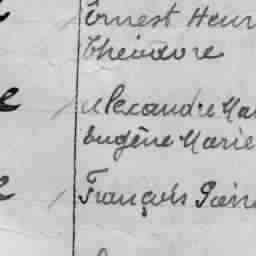 Ernest Henr
Théodore
Alexandre Mar
Eugène Marie
François Pierr